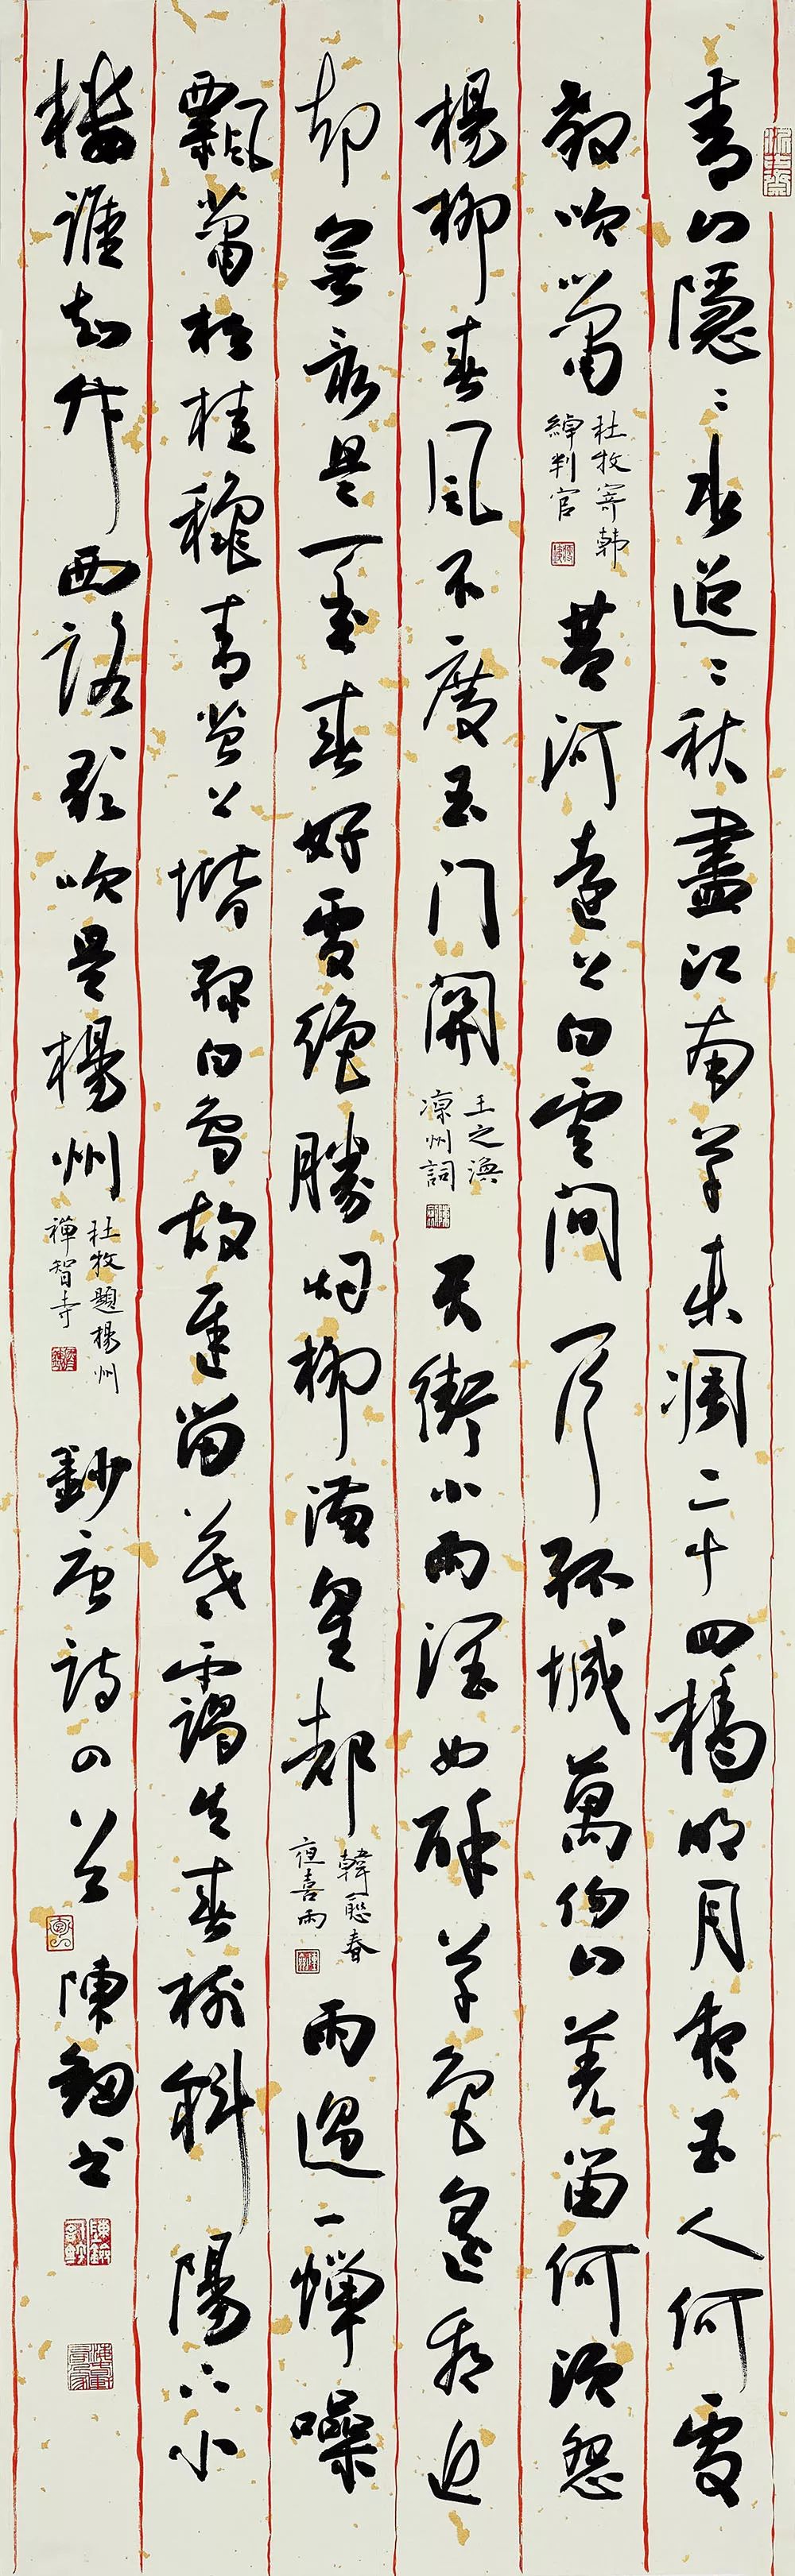 青山隱〻水迢〻秋盡江南草未凋二十四橋明月夜玉人何處
教吹簫
杜牧寄韓
綽判官
黃河遠上白雲間一片孤城萬仞山羌笛何須怨
楊柳春風不度玉门關
王之渙
凉州詞
天街小雨潤如酥草色遥看近
却無最是一年春好處絕勝烟柳滿皇都
韓愈春
夜喜雨
雨過一蟬噪
飄蕭松桂穐青苔上堦砌白鳥故遲留暮靄生春樹斜陽下小
樓誰知竹西路歌吹是楊州
杜牧題楊州
禪智寺
鈔唐詩四首
陳劒書